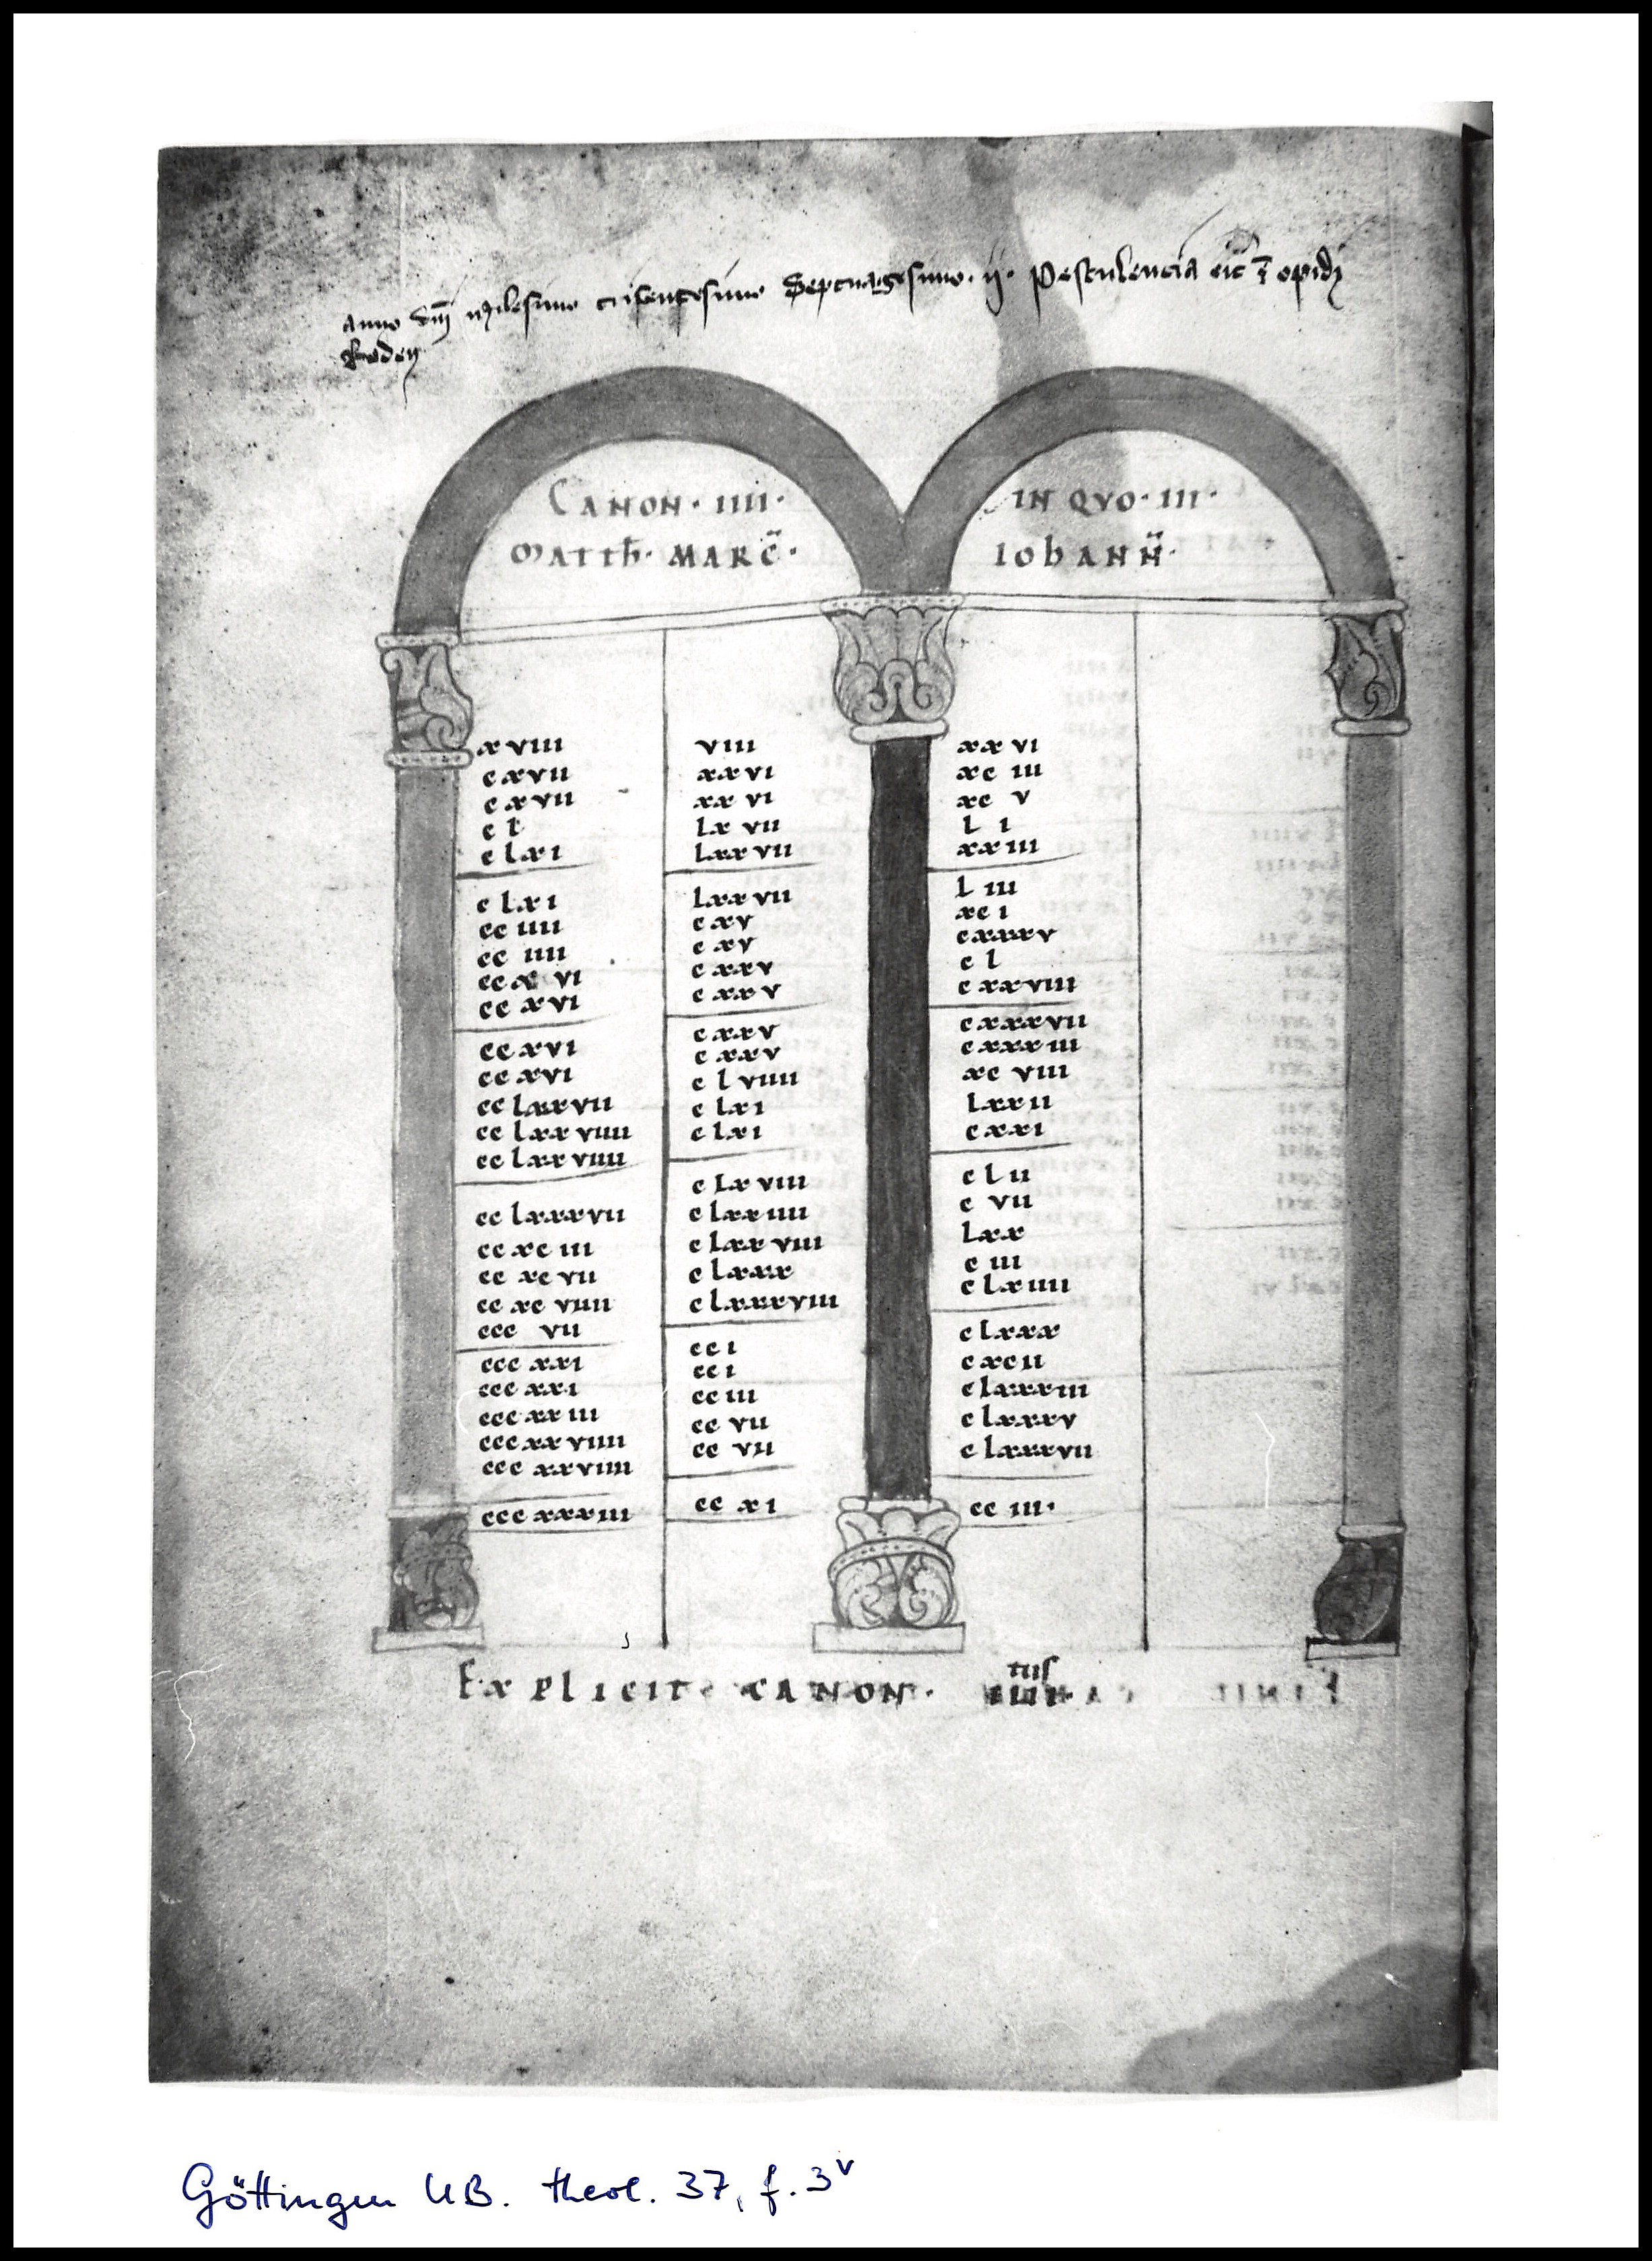 anno dnī Milesimo tricentesimo Septuagesimo ij Pestulencia eic ī opidȷ
CANON · IIII ·
IN QVO · III ·
MATTH · MARC ·
IOhANN ·
xviii viii xxvi
cxvii xxvi xciii
cxvii xxvi xcv
cl lxvii li
clxi lxxvii xxiii
clxi lxxvii liii
cciiii cxv xci
cciiii cxv cxxxv
ccxvi cxxv cl
ccxvi cxxv cxxviii
ccxvi cxxv cxxxvii
ccxvi cxxv cxxxiii
cclxxvii clviiii xcviii
cclxxviiii clxi lxxii
cclxxviiii clxi cxxi
cclxxxvii clxviii clii
ccxciii clxxiiii cvii
ccxcvii clxxviii lxx
ccxcviiii clxxx ciii
cccvii clxxxviii clxiiii
cccxxi cci clxxx
cccxxi cci cxcii
cccxxiii cciii clxxxiii
cccxxviiii ccvii clxxxv
cccxxviiii ccvii clxxxvii
cccxxxiii ccxi cciii ·
EXPLICIT · CANON · IIII tus
Göttingen UB. theol. 37, f. 3v